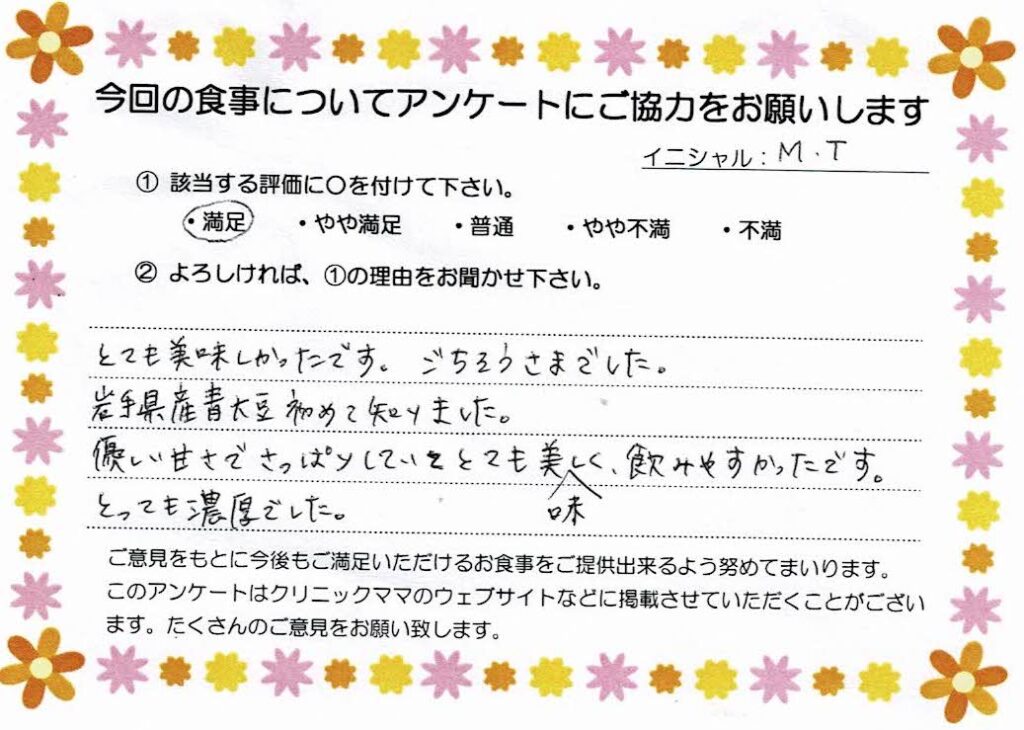 今回の食事についてアンケートにご協力をお願いします
イニシャル：M.T
① 該当する評価に○を付けて下さい。
・満足 ・やや満足 ・普通 ・やや不満 ・不満
② よろしければ、①の理由をお聞かせ下さい。
とても美味しかったです。ごちそうさまでした。
岩手県産青大豆初めて知りました。
優しい甘さでさっぱりしていてとても美味しく、飲みやすかったです。
とっても濃厚でした。
ご意見をもとに今後もご満足いただけるお食事をご提供出来るよう努めてまいります。
このアンケートはクリニックママのウェブサイトなどに掲載させていただくことがござい
ます。たくさんのご意見をお願い致します。